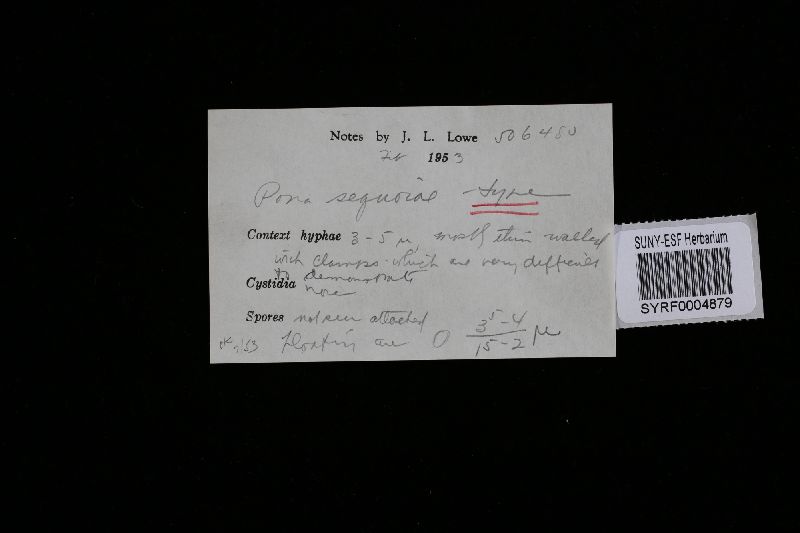 Notes by J. L. Lowe 506480
Feb 1953
Poria sequoiae type
Context hyphae 3-5 µ, mostly thin walled
with clamps which are very difficult
to demonstrate
Cystidia none
Spores not seen attached
Floating are 0 3⁵-4 / 1⁵-2 µ
OK 2/53
SUNY-ESF Herbarium
SYRF0004879